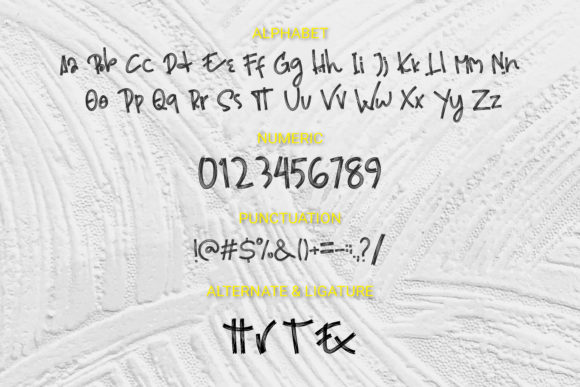 ALPHABET
Aa Bb Cc Dd Ee Ff Gg Hh Ii Jj Kk Ll Mm Nn
Oo Pp Qq Rr Ss Tt Uu Vv Ww Xx Yy Zz
NUMERIC
0123456789
PUNCTUATION
!@#$%&()+=-:;.,?/
ALTERNATE & LIGATURE